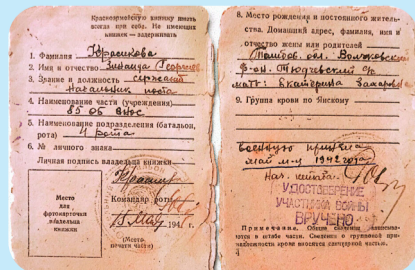 Красноармейскую книжку иметь
всегда при себе. Не имеющих
книжек — задерживать
1. Фамилия Красикова
2. Имя и отчество Зинаида Георгиев.
3. Звание и должность сержант
Начальник поста
4. Наименование части (учреждения)
85 ОБ ВНОС
5. Наименование подразделения (батальон,
рота) 4 рота
6. № личного знака
Личная подпись владельца книжки
Место
для
фотокарточки
владельца
книжки
Командир роты
18 Мая 194
(Место
печати)
8. Место рождения и постоянного житель-
ства. Домашний адрес, фамилия, имя и
отчество жены или родителей
Тамбов. обл.
мать: Екатерина Захаровна
9. Группа крови по Янскому
май м-ц 1942 года
Нач. штаба
УДОСТОВЕРЕНИЕ
УЧАСТНИКА ВОЙНЫ
ВРУЧЕНО
Примечания. Общие сведения
в штабе части. Сведения о групповой при-
надлежности крови вносятся санитарной частью.